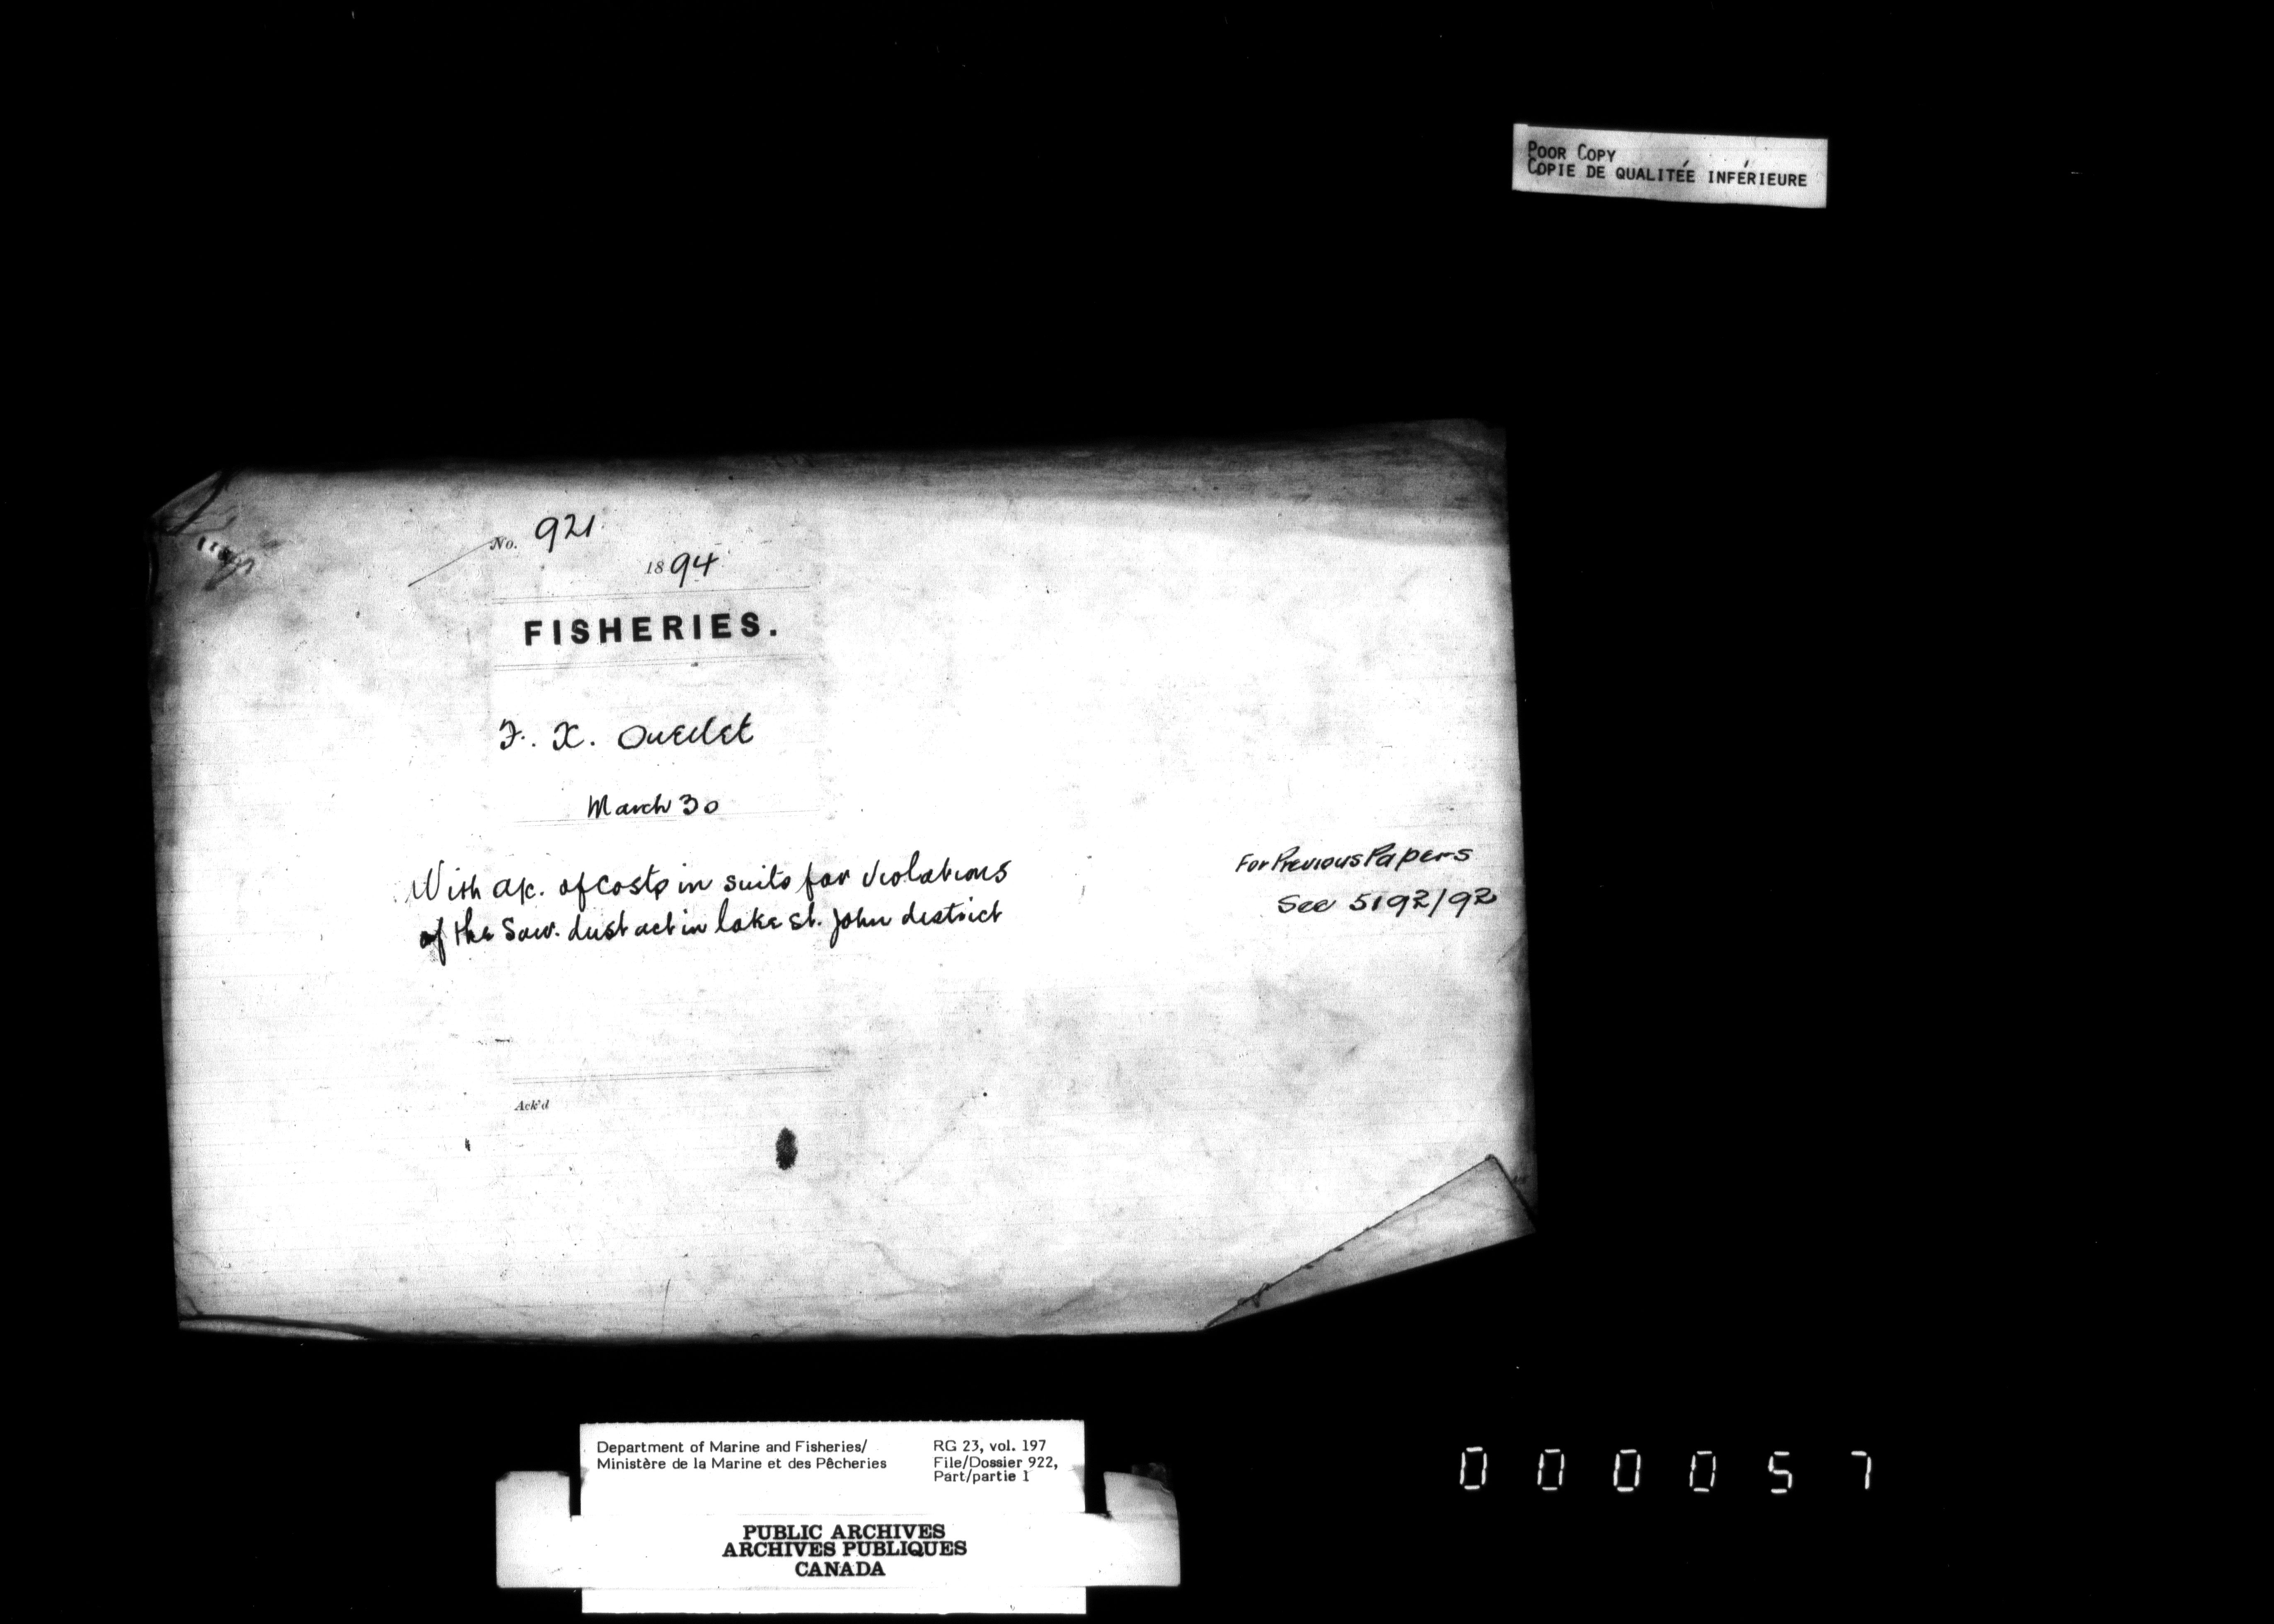 POOR COPY
COPIE DE QUALITÉE INFÉRIEURE
No. 921
1894
FISHERIES.
F. X. Ouellet
March 30
With a/c. of costs in suits for violations
of the Saw. dust act in lake St. John district
For Previous Papers
See 5192/92
Ack'd
Department of Marine and Fisheries/
Ministère de la Marine et des Pêcheries
RG 23, vol. 197
File/Dossier 922,
Part/partie 1
PUBLIC ARCHIVES
ARCHIVES PUBLIQUES
CANADA
000057